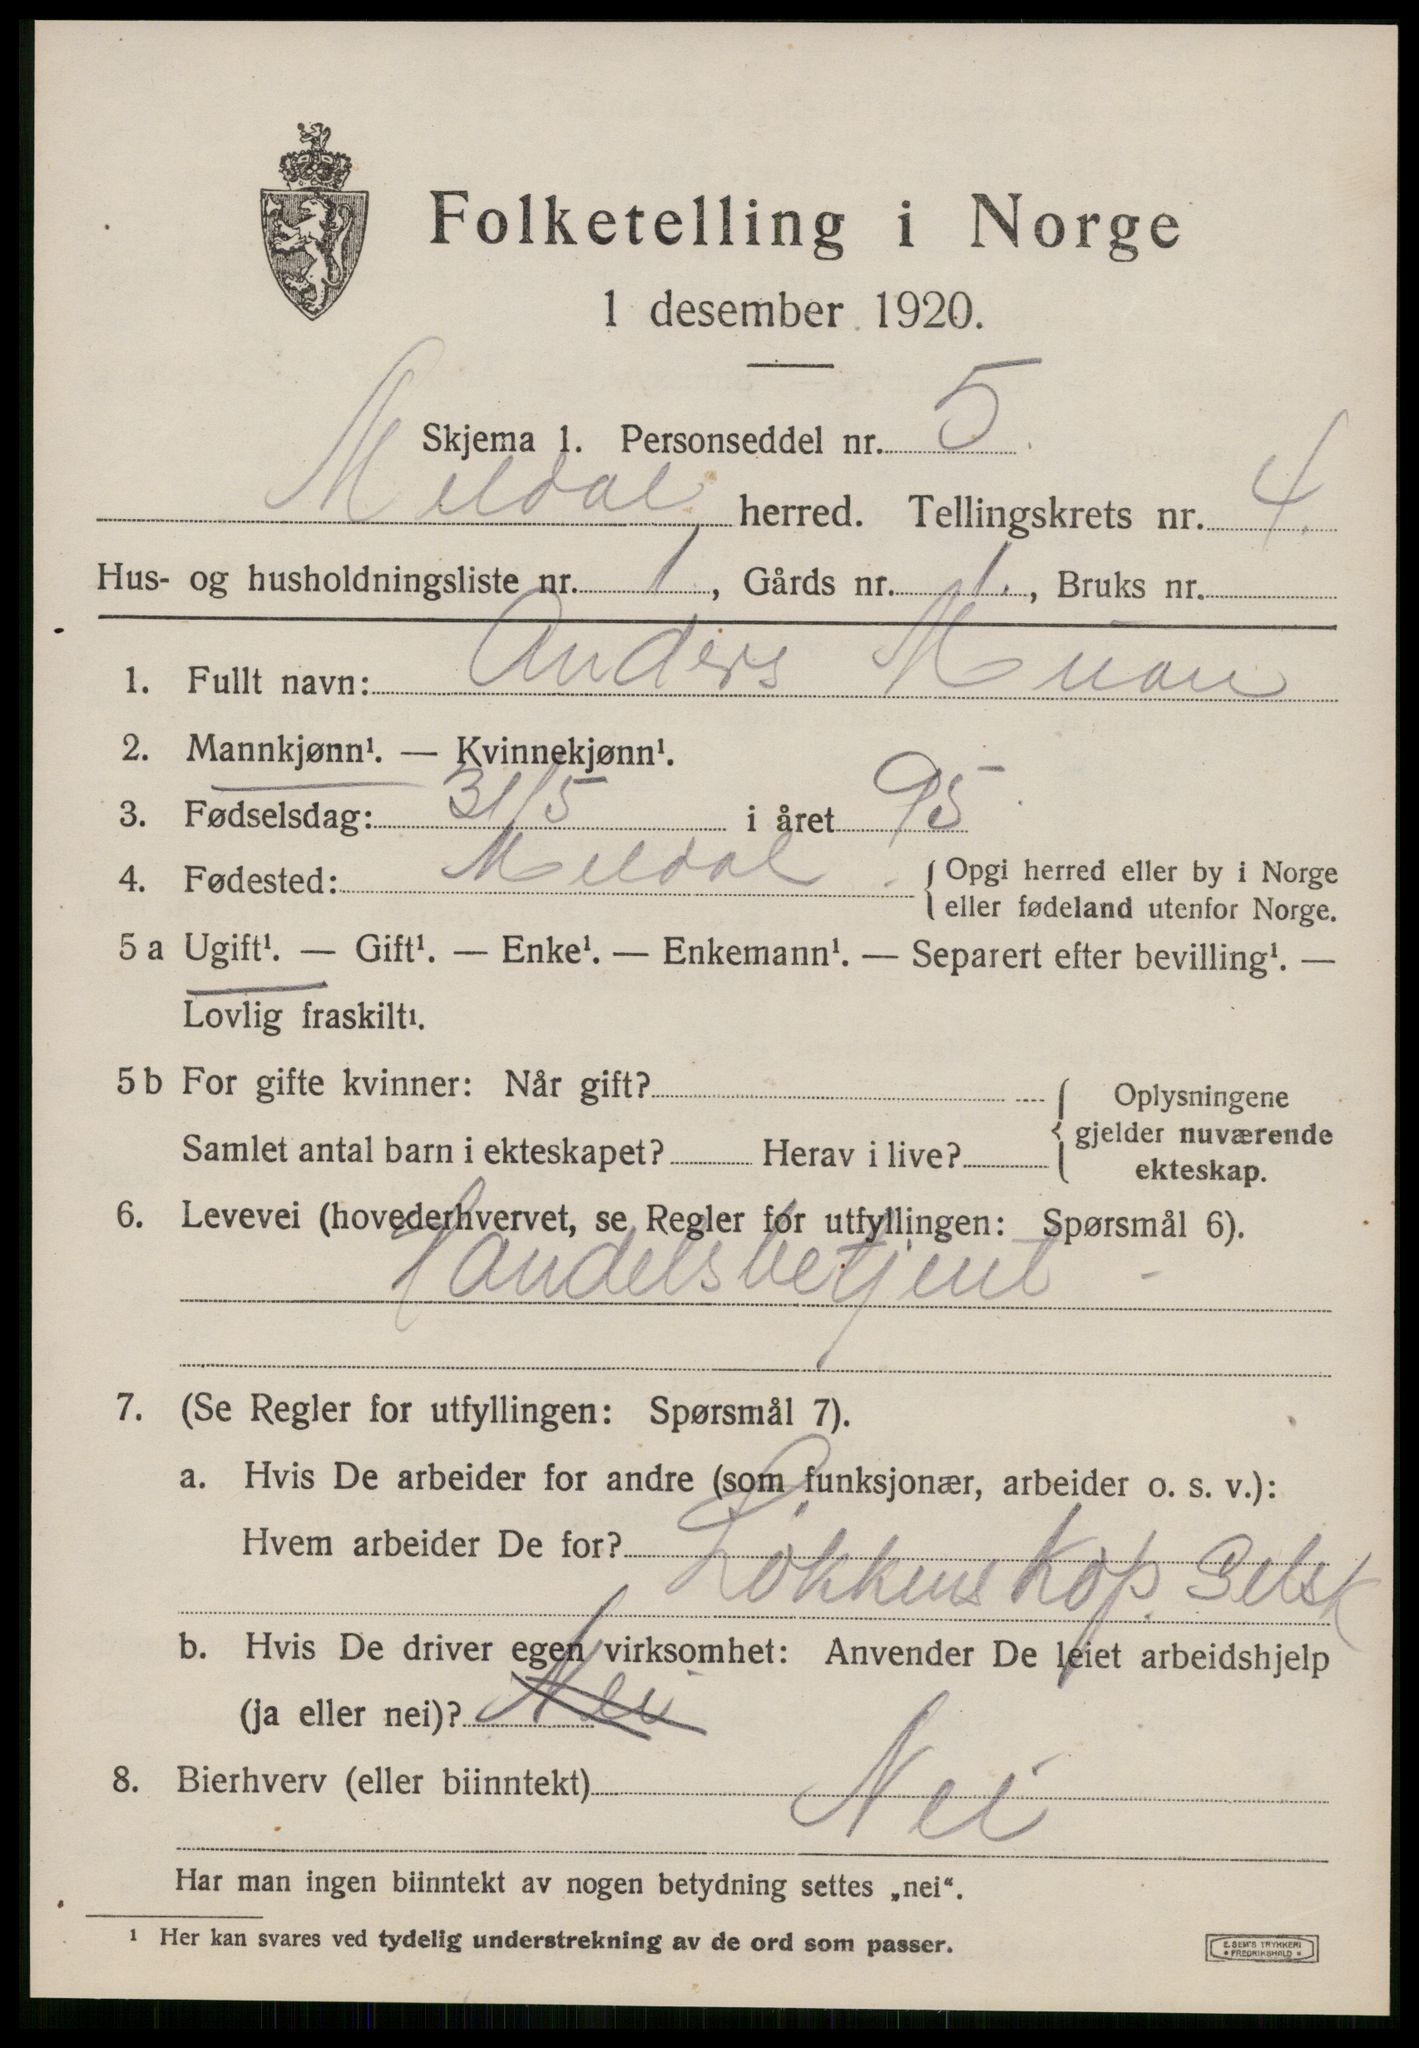 Folketelling i Norge
1 desember 1920.
Skjema 1. Personseddel nr. 5.
Meldal herred. Tellingskrets nr. 4.
Hus- og husholdningsliste nr. 1, Gårds nr. 1., Bruks nr.
1. Fullt navn: Anders Muan
2. Mannkjønn¹. — Kvinnekjønn¹.
3. Fødselsdag: 31/5 i året 95.
4. Fødested: Meldal. { Opgi herred eller by i Norge
eller fødeland utenfor Norge.
5 a Ugift¹. — Gift¹. — Enke¹. — Enkemann¹. — Separert efter bevilling¹. —
Lovlig fraskilt¹.
5 b For gifte kvinner: Når gift? { Oplysningene
gjelder nuværende
Samlet antal barn i ekteskapet? Herav i live?
ekteskap.
6. Levevei (hovederhvervet, se Regler for utfyllingen: Spørsmål 6).
Handelsbetjent -
7. (Se Regler for utfyllingen: Spørsmål 7).
a. Hvis De arbeider for andre (som funksjonær, arbeider o. s. v.):
Hvem arbeider De for?
Løkkens Kop. Selsk
b. Hvis De driver egen virksomhet: Anvender De leiet arbeidshjelp
(ja eller nei)? Nei
8. Bierhverv (eller biinntekt) Nei
Har man ingen biinntekt av nogen betydning settes „nei“.
¹ Her kan svares ved tydelig understrekning av de ord som passer.
E. SEM'S TRYKKERI
* FREDRIKSHALD *